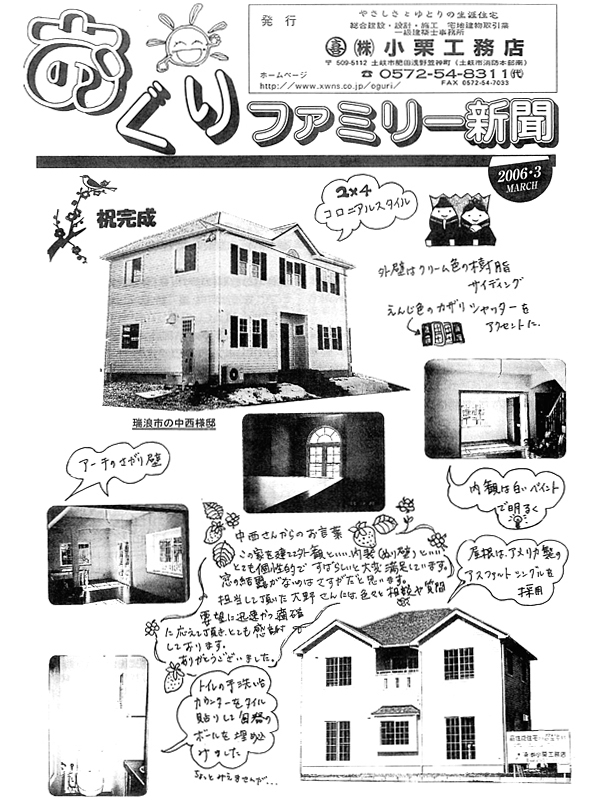 おぐりファミリー新聞
発行
やさしさとゆとりの生涯住宅
総合建設・設計・施工 宅地建物取引業
一級建築士事務所
㊎ ㈱ 小栗工務店
〒509-5112 土岐市肥田浅野笠神町(土岐市消防本部南)
☎ 0572-54-8311㈹
FAX 0572-54-7033
ホームページ
http://www.xwns.co.jp/oguri/
2006・3
MARCH
祝完成
2×4
コロニアルスタイル
外壁はクリーム色の樹脂
サイディング
えんじ色のカザリシャッターを
アクセントに.
瑞浪市の中西様邸
アーチのさがり壁
内観は白いペイント
で明るく
屋根は、アメリカ製の
アスファルトシングルを
採用
中西さんからのお言葉
この家を建てて外観といい、内装(ぬり壁)といい
とても個性的で すばらしいと大変満足しています。
窓の結露がないのはさすがだと思います。
担当して頂いた大野さんには、色々と相談や質問
要望に迅速かつ適確
に応えて頂き、とても感謝
しております。
ありがとうございました。
トイレの手洗い台
カウンターをタイル
貼りして
ボールを埋め込
みました
ちょっとみえませんが…
小栗工務店